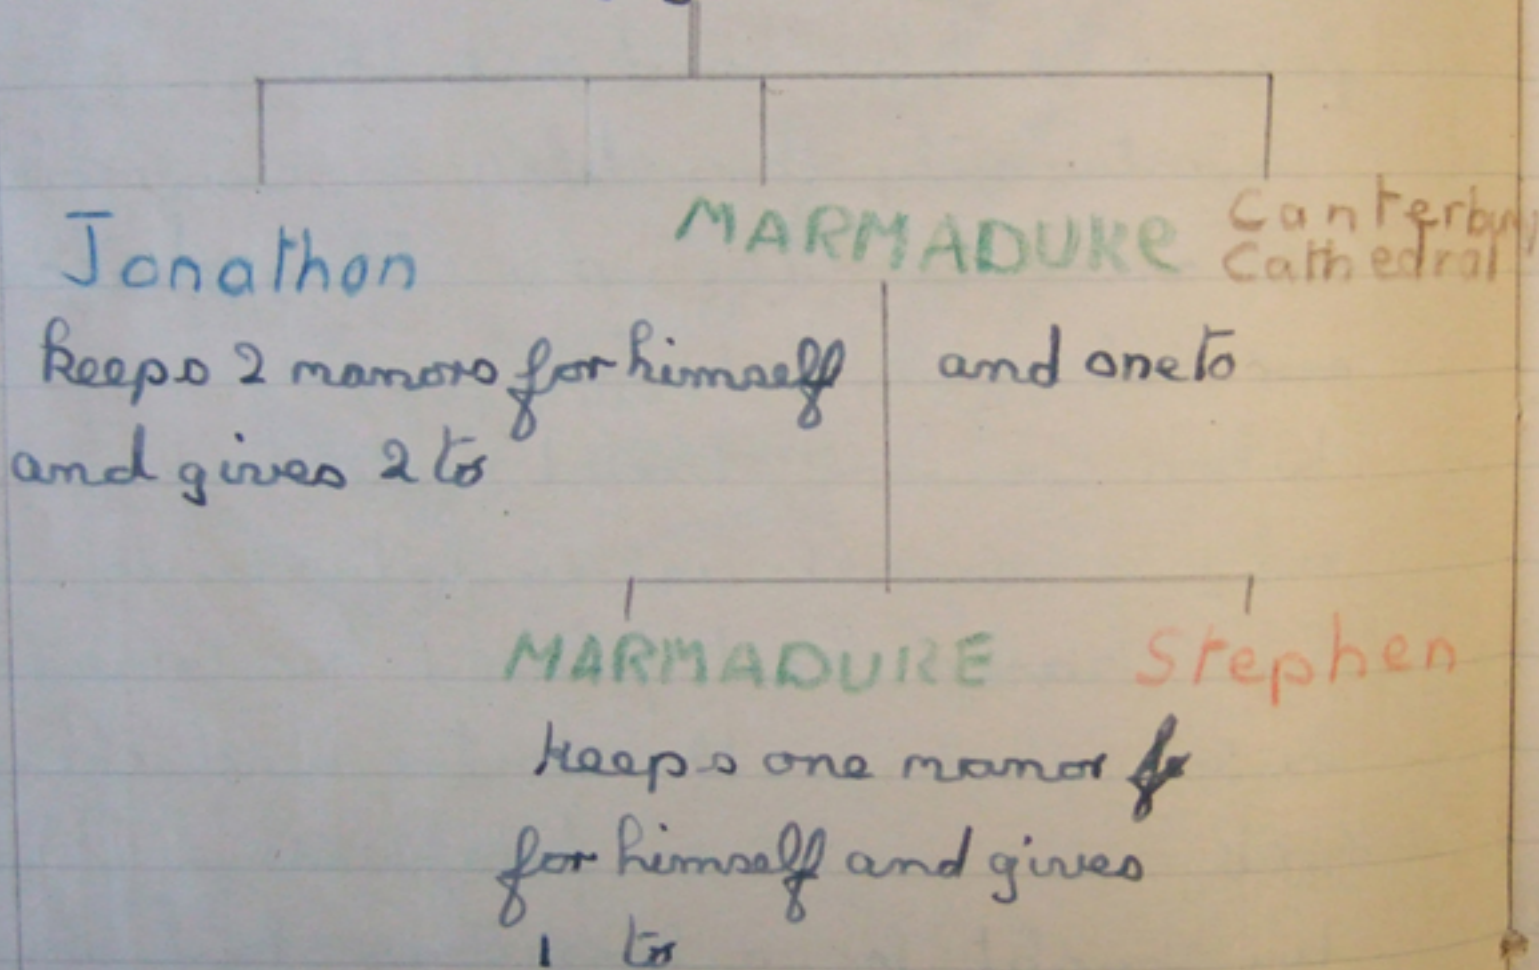 Jonathon MARMADUKE Canterbury
Cathedral
keeps 2 manors for himself and one to
and gives 2 to
MARMADUKE Stephen
keeps one manor
for himself and gives
1 to